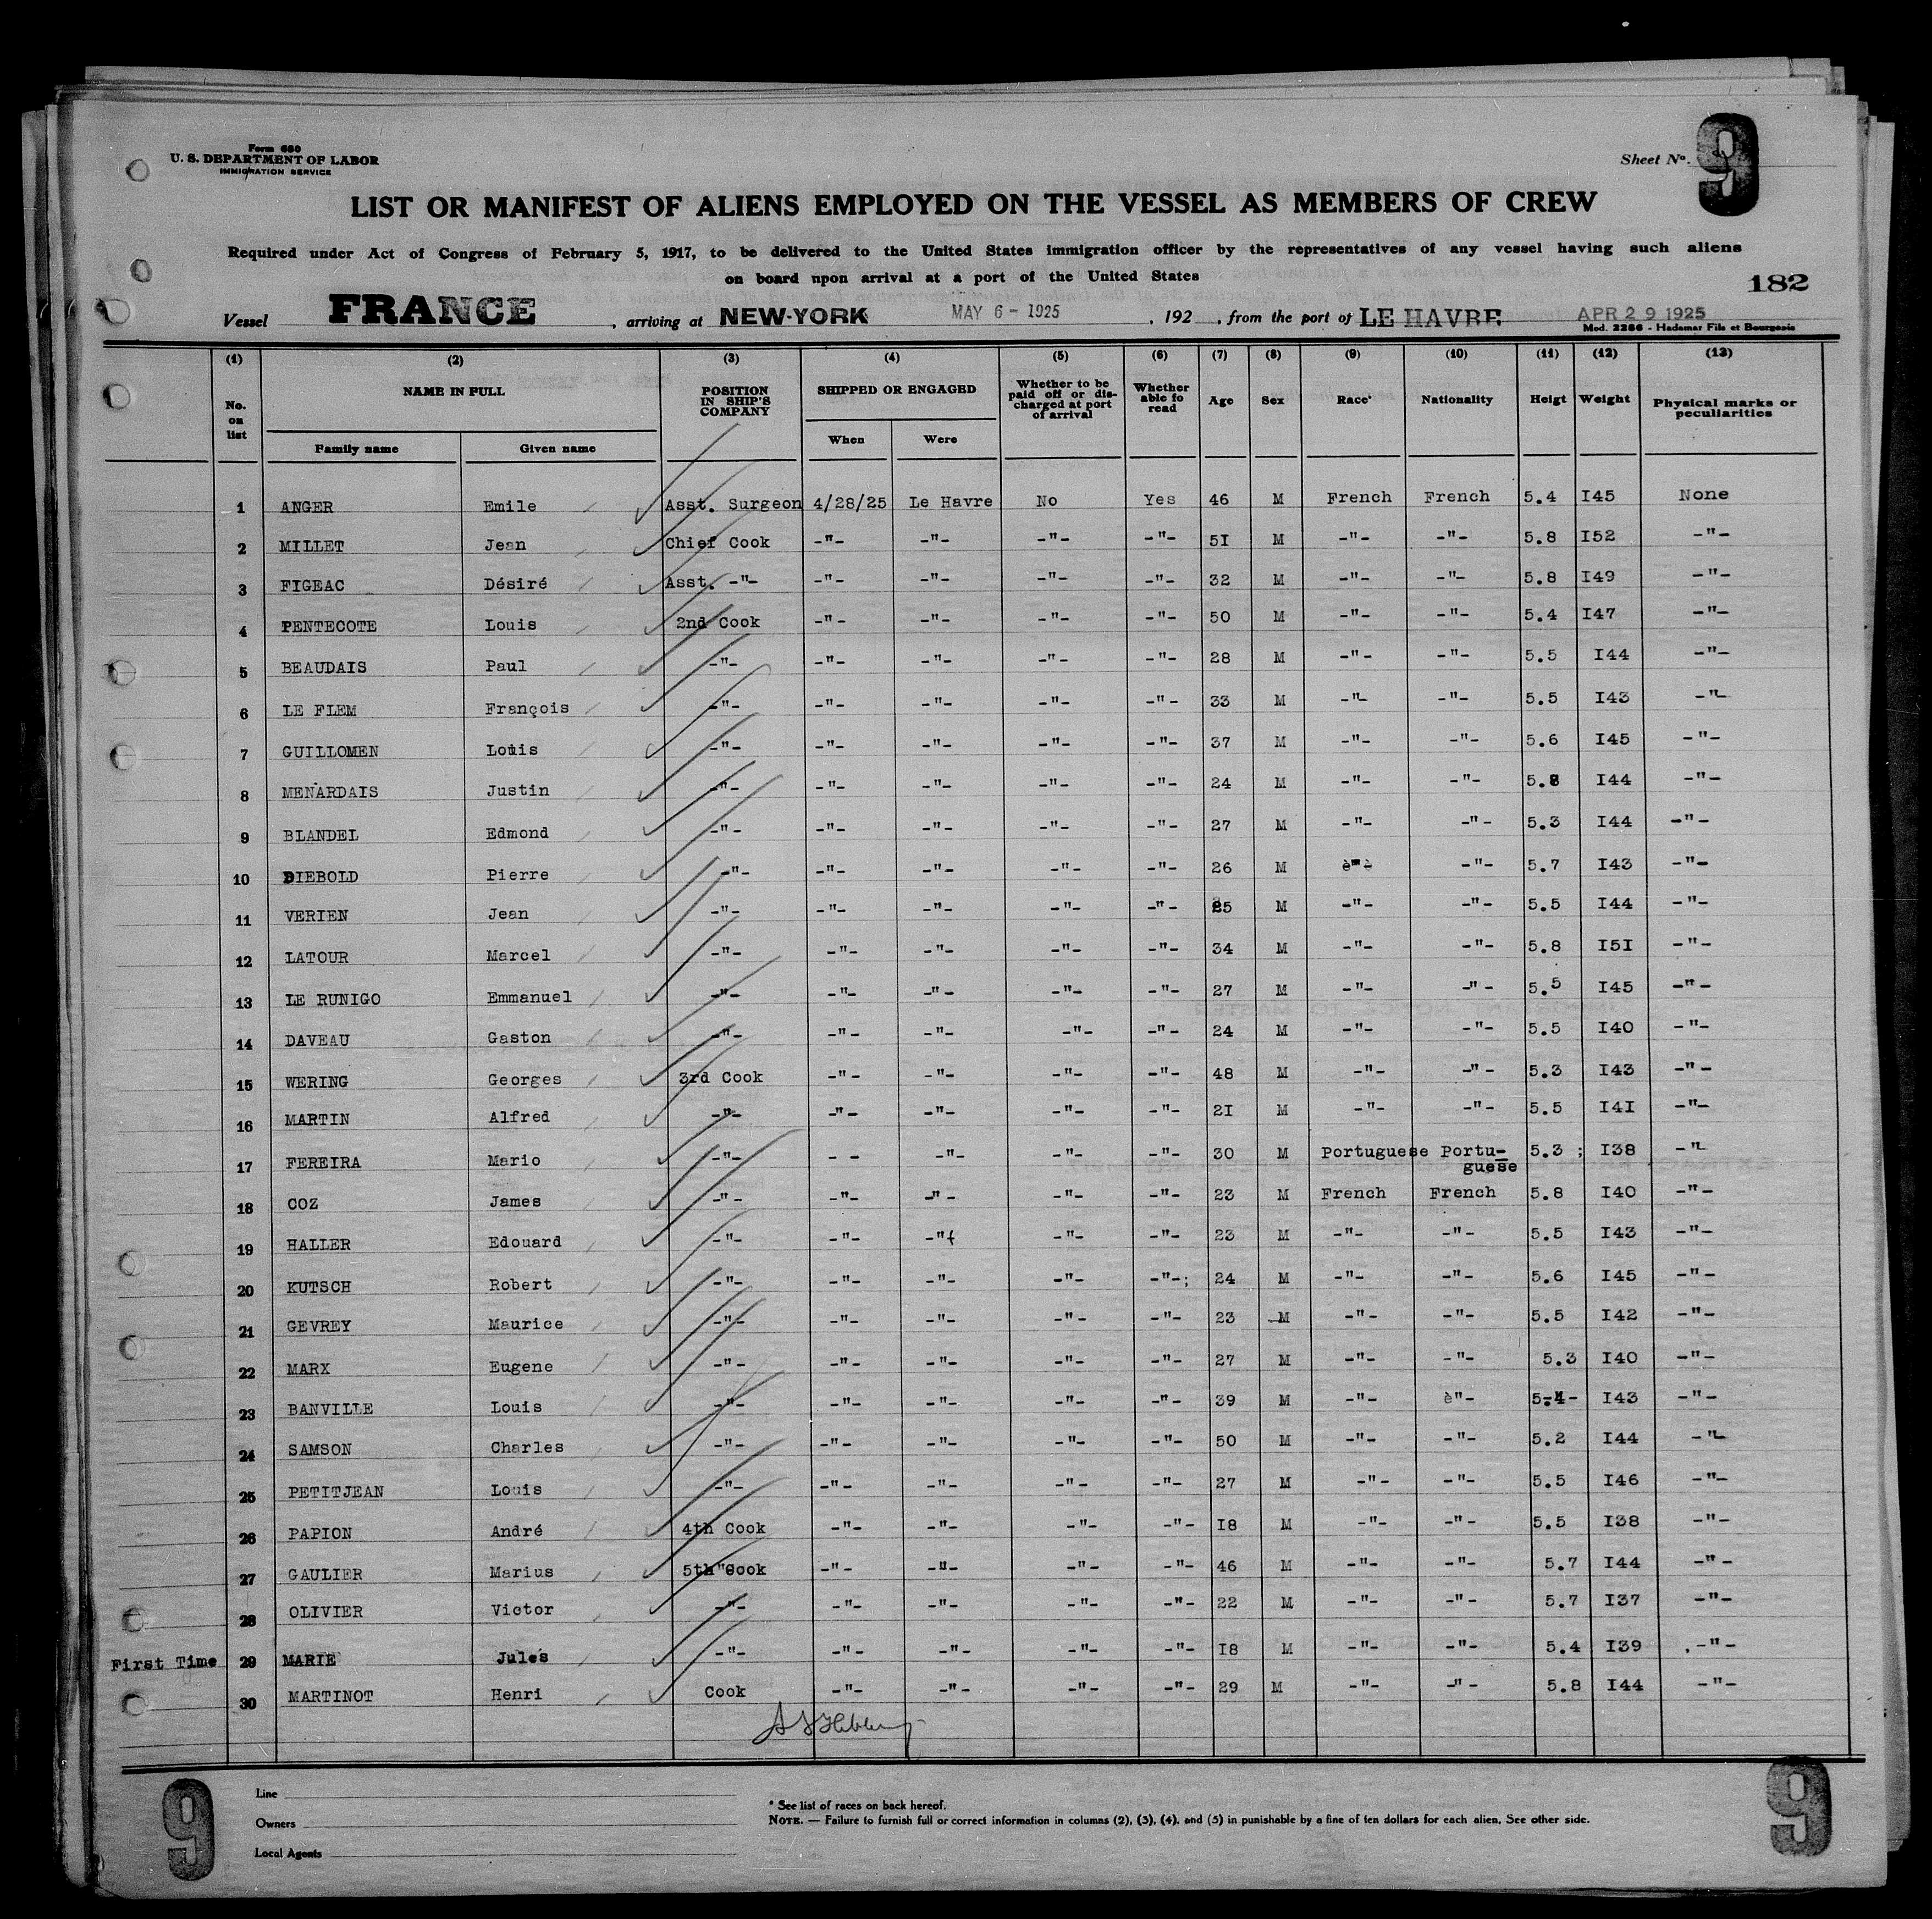 Form 680
U. S. DEPARTMENT OF LABOR
IMMIGRATION SERVICE
Sheet No. 9
LIST OR MANIFEST OF ALIENS EMPLOYED ON THE VESSEL AS MEMBERS OF CREW
Required under Act of Congress of February 5, 1917, to be delivered to the United States immigration officer by the representatives of any vessel having such aliens
on board upon arrival at a port of the United States
182
Vessel FRANCE , arriving at NEW-YORK MAY 6 - 1925 , 192 , from the port of LE HAVRE APR 29 1925
Mod. 2286 - Hademar Fils et Bourgeois
(1) (2) (3) (4) (5) (6) (7) (8) (9) (10) (11) (12) (13)
No. on list NAME IN FULL POSITION IN SHIP'S COMPANY SHIPPED OR ENGAGED Whether to be paid off or discharged at port of arrival Whether able to read Age Sex Race* Nationality Heigt Weight Physical marks or peculiarities
Family name Given name When Were
1 ANGER Emile Asst. Surgeon 4/28/25 Le Havre No Yes 46 M French French 5.4 I45 None
2 MILLET Jean Chief Cook -"- -"- -"- -"- 5I M -"- -"- 5.8 I52 -"-
3 FIGEAC Désiré Asst. -"- -"- -"- -"- -"- 32 M -"- -"- 5.8 I49 -"-
4 PENTECOTE Louis 2nd Cook -"- -"- -"- -"- 50 M -"- -"- 5.4 I47 -"-
5 BEAUDAIS Paul -"- -"- -"- -"- -"- 28 M -"- -"- 5.5 I44 -"-
6 LE FLEM François -"- -"- -"- -"- -"- 33 M -"- -"- 5.5 I43 -"-
7 GUILLOMEN Louis -"- -"- -"- -"- -"- 37 M -"- -"- 5.6 I45 -"-
8 MENARDAIS Justin -"- -"- -"- -"- -"- 24 M -"- -"- 5.8 I44 -"-
9 BLANDEL Edmond -"- -"- -"- -"- -"- 27 M -"- -"- 5.3 I44 -"-
10 DIEBOLD Pierre -"- -"- -"- -"- -"- 26 M è"è -"- 5.7 I43 -"-
11 VERIEN Jean -"- -"- -"- -"- -"- 25 M -"- -"- 5.5 I44 -"-
12 LATOUR Marcel -"- -"- -"- -"- -"- 34 M -"- -"- 5.8 I5I -"-
13 LE RUNIGO Emmanuel -"- -"- -"- -"- -"- 27 M -"- -"- 5.5 I45 -"-
14 DAVEAU Gaston -"- -"- -"- -"- -"- 24 M -"- -"- 5.5 I40 -"-
15 WERING Georges 3rd Cook -"- -"- -"- -"- 48 M -"- -"- 5.3 I43 -"-
16 MARTIN Alfred -"- -"- -"- -"- -"- 2I M -"- -"- 5.5 I4I -"-
17 FEREIRA Mario -"- - - -"- -"- -"- 30 M Portuguese Portu-guese 5.3 ; I38 -"-
18 COZ James -"- -"- -"- -"- -"- 23 M French French 5.8 I40 -"-
19 HALLER Edouard -"- -"- -"f -"- -"- 23 M -"- -"- 5.5 I43 -"-
20 KUTSCH Robert -"- -"- -"- -"- -"-; 24 M -"- -"- 5.6 I45 -"-
21 GEVREY Maurice -"- -"- -"- -"- -"- 23 M -"- -"- 5.5 I42 -"-
22 MARX Eugene -"- -"- -"- -"- -"- 27 M -"- -"- 5.3 I40 -"-
23 BANVILLE Louis -"- -"- -"- -"- -"- 39 M -"- è"- 5-4- I43 -"-
24 SAMSON Charles -"- -"- -"- -"- -"- 50 M -"- -"- 5.2 I44 -"-
25 PETITJEAN Louis -"- -"- -"- -"- -"- 27 M -"- -"- 5.5 I46 -"-
26 PAPION André 4th Cook -"- -"- -"- -"- I8 M -"- -"- 5.5 I38 -"-
27 GAULIER Marius 5th"Cook -"- -"- -"- -"- 46 M -"- -"- 5.7 I44 -"-
28 OLIVIER Victor -"- -"- -"- -"- -"- 22 M -"- -"- 5.7 I37 -"-
First Time 29 MARIE Jules -"- -"- -"- -"- -"- I8 M -"- -"- 5.4 I39 .-"-
30 MARTINOT Henri Cook -"- -"- -"- -"- 29 M -"- -"- 5.8 I44 -"-
9 Line 9
* See list of races on back hereof.
Owners
NOTE. — Failure to furnish full or correct information in columns (2), (3), (4), and (5) in punishable by a fine of ten dollars for each alien. See other side.
Local Agents